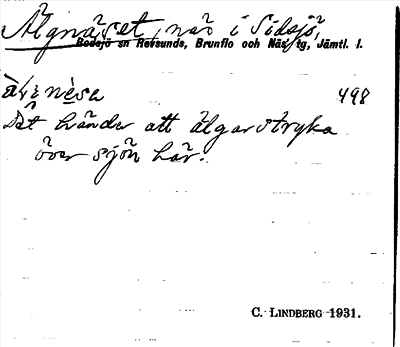 Älgnäset, näs i Sidsjö,
Bodsjö sn Revsunds, Brunflo och Näs tg, Jämtl. l.
498
Det händer att älgar stryka
över sjön här.
C. LINDBERG 1931.